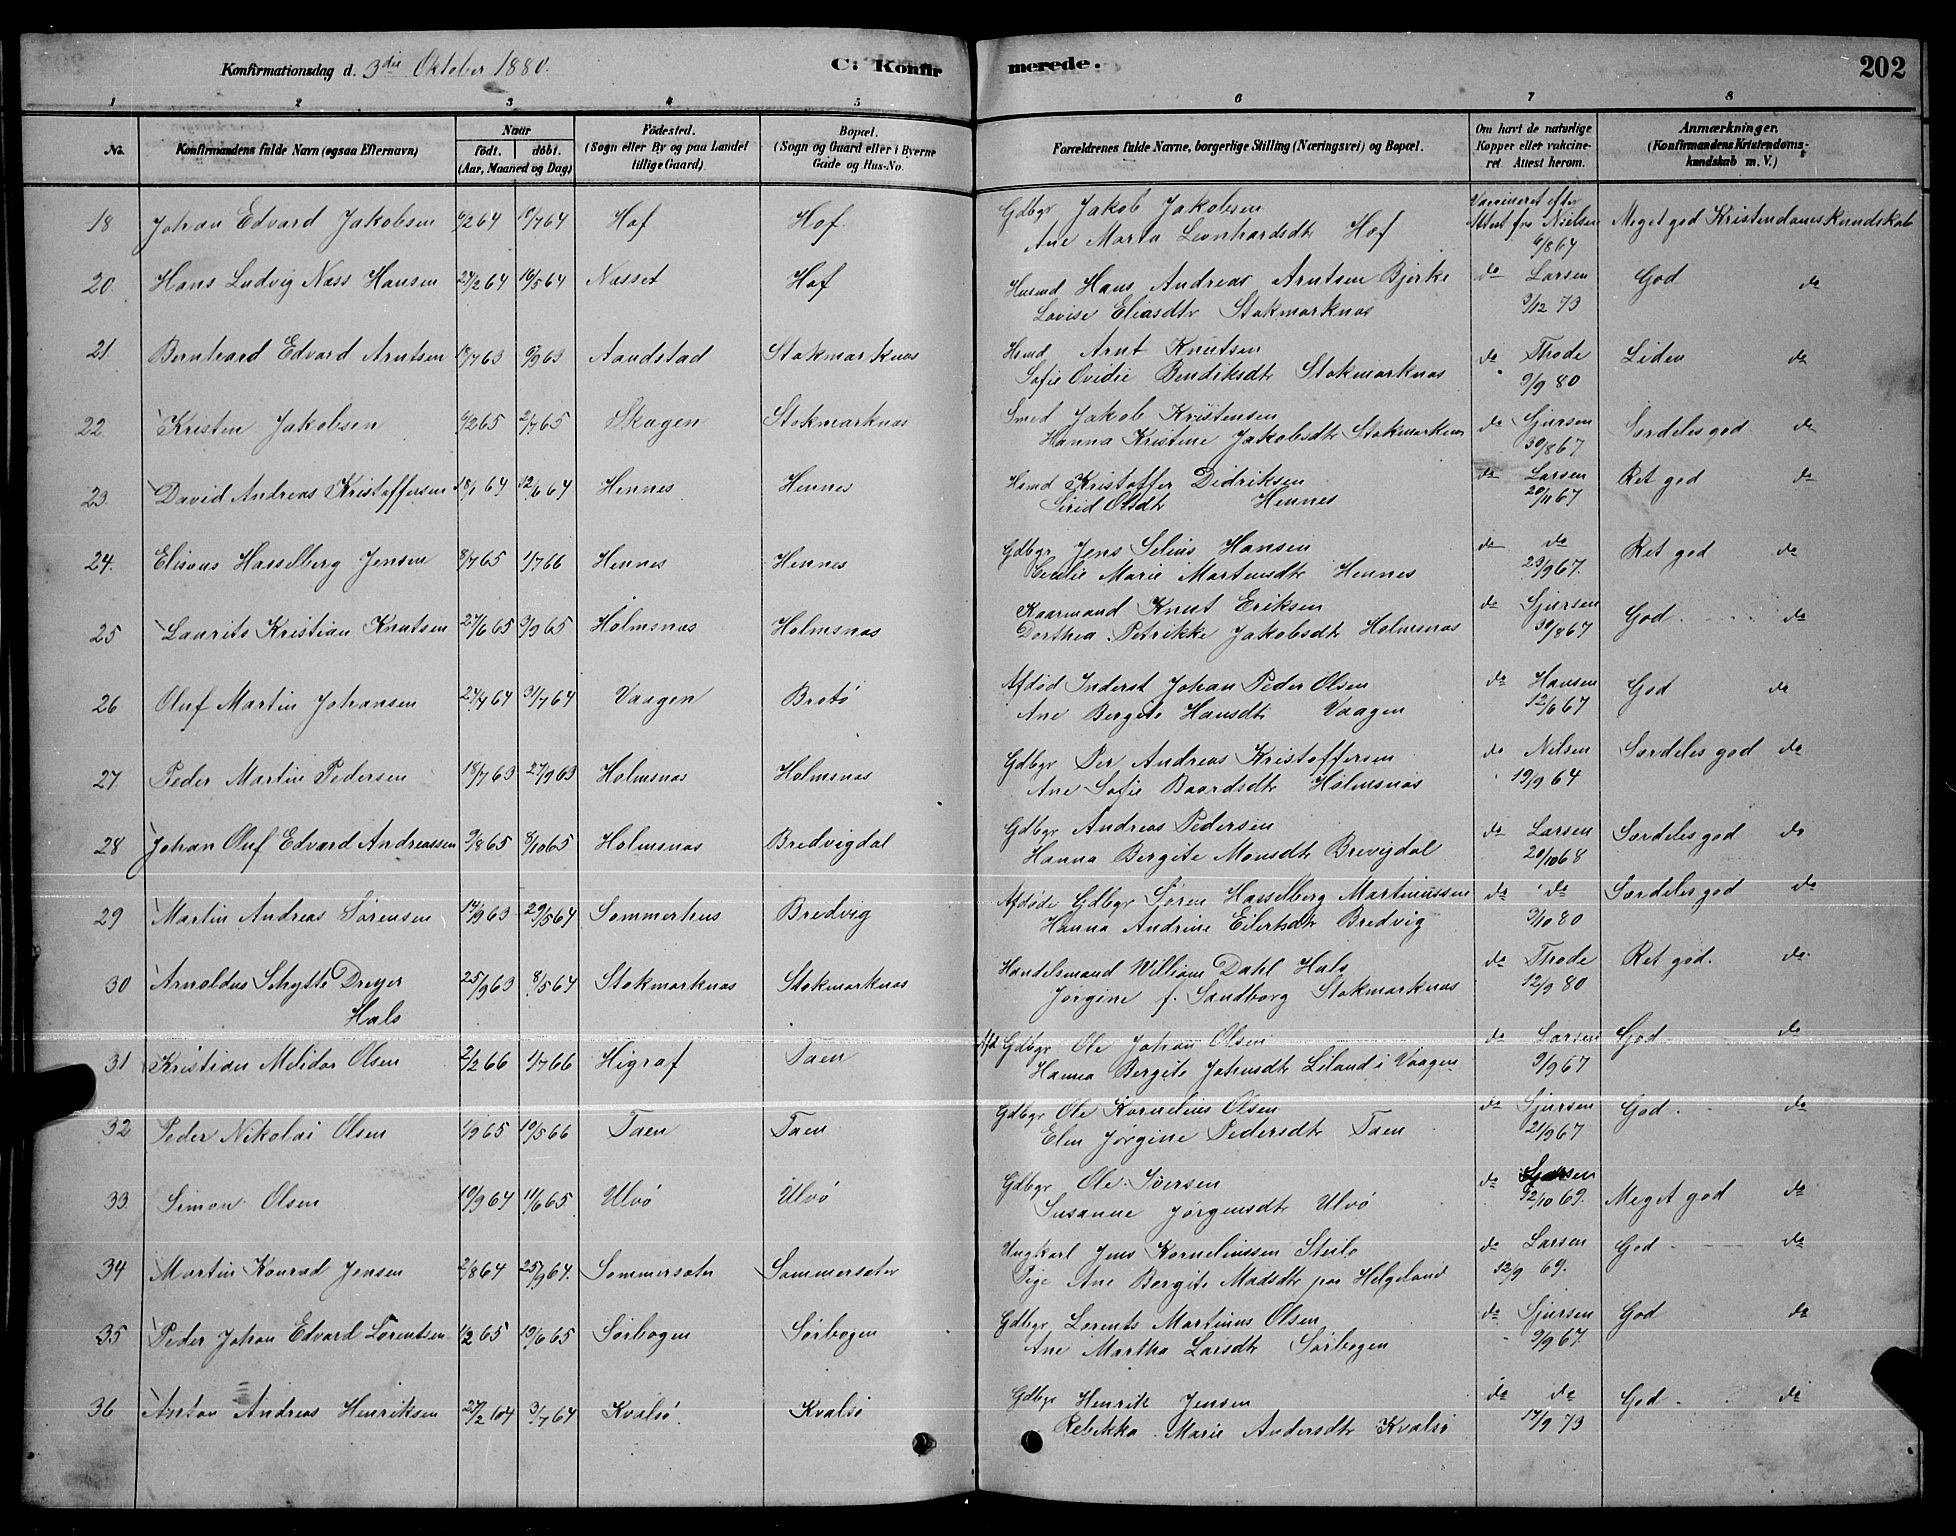 Konfirmationsdag d. 3die Oktober 1880.
C: Konfirmerede.
202
1 2 3 4 5 6 7 8
No. Konfirmandens fulde Navn (ogsaa Efternavn) Naar født. døbt. (Aar, Maaned og Dag) Fødested. (Sogn eller By og paa Landet tillige Gaard). Bopæl. (Sogn og Gaard eller i Byerne Gade og Hus-No. Forældrenes fulde Navne, borgerlige Stilling (Næringsvei) og Bopæl. Om havt de naturlige Kopper eller vakcineret Attest herom. Anmærkninger. (Konfirmandens Kristendomskundskab m. V.)
18 Johan Edvard Jakobsen 6/2 64 10/7 64 Hof Hof. Gdbgr Jakob Jakobsen Vaccineret efter
Ane Marta Leonhardsdtr Hof Attest fra Nielsen 6/8 64 Meget god Kristendomskundskab
20. Hans Ludvig Næss Hansen 24/2 64 16/5 64 Næsset Hof Husmd Hans Andreas Arntsen Bjørke do Larsen God do
Lovise Eliasdtr Stokmarknæs 9/12 73
21 Bernhard Edvard Arntsen 18/7 63 6/9 63 Aandstad Stokmarknæs Husmd Arnt Knutsen do Thode Liden do
Sofie Ovidie Bendiksdtr Stokmarknæs 9/9 80
22 Kristen Jakobsen 6/2 65 2/7 65 Skagen Stokmarknæs Smed Jakob Kristensen
Hanna Kristine Jakobsdtr Stokmarknæs do Sjursen 30/8 67 Særdeles god do
23. David Andreas Kristoffersen 18/1 64 12/6 64 Hennes Hennes Husmd Kristoffer Didriksen do Larsen Ret god do
Sirid Olsdtr Hennes 20/11 67
24. Elisæus Hasselberg Jensen 8/7 65 1/7 66 Hennes Hennes Gdbgr Jens Selius Hansen do do Ret god do
Cecilie Marie Martensdtr Hennes 23/9 67.
25 Laurits Kristian Knutsen 27/6 65 3/9 65 Holmsnæs Holmsnæs Kaarmand Knut Eriksen do Sjursen God. do
Dorthea Petrikke Jakobsdtr Holmsnæs 30/8 67
26 Oluf Martin Johansen 24/4 64 31/7 64 Vaagen Brotø Afdød Inderst Johan Peder Olsen do Hansen God do
Ane Bergite Hansdtr Vaagen 12/6 67
27. Peder Martin Pedersen 18/7 63 27/9 63 Holmsnæs Holmsnæs Gdbgr Per Andreas Kristoffersen do Nilsen Særdeles god do
Ane Sofie Baardsdtr Holmsnæs 19/9 64
28 Johan Oluf Edvard Andreassen 9/8 65 8/10 65 Holmsnæs Bredvigdal Gdbgr Andreas Pedersen do Larsen Særdeles god do
Hanna Bergite Monsdtr Brevigdal 20/10 68
29 Martin Andreas Sørensen 14/9 63 29/5 64 Sommerhus Bredvig Afdøde Gdbgr Søren Hasselberg Martinussen do do Særdeles god do
Hanna Andrine Eilertsdtr Bredvig 3/10 80
30 Arnoldus Schytte Dreyer 25/9 63 8/5 64 Stokmarknæs Stokmarknæs Handelsmand William Dahl Hals do Thode Ret god. do.
Hals Jørgine f. Sandborg Stokmarknæs 12/9 80
31 Kristian Melidor Olsen 2/2 66 1/7 66 Higraf Taen Afd Gdbgr Ole Johan Olsen do Larsen God. do
Hanna Bergite Johnsdtr Liland i Vaagen 9/9 67
32 Peder Nikolai Olsen 1/9 65 10/5 66 Taen Taen Gdbgr Ole Kornelius Olsen do Sjursen God. do
Elen Jørgine Pedersdtr Taen 21/9 67
33. Simon Olsen 10/9 64 11/6 65 Ulvø Ulvø Gdbgr Ole Iversen do Sjursen Meget god do
Susanne Jørgensdtr Ulvø 12/10 69.
34 Martin Konrad Jensen 2/8 64 25/9 64. Sommersæter Sommersæter Ungkarl Jens Korneliussen Steilo do Larsen God do
Pige Ane Bergite Madsdtr paa Helgeland 12/9 69.
35 Peder Johan Edvard Lorentsen 1/2 65 10/6 65 Sørbogen Sørbogen Gdbgr Lorents Martinus Olsen do Sjursen God do
Ane Martha Larsdtr Sørbogen 9/9 67.
36 Anton Andreas Henriksen 27/2 64 3/7 64 Kvalsø. Kvalsø Gdbgr Henrik Jensen do do God do
Rebekka Marie Andersdtr Kvalsø 17/9 73